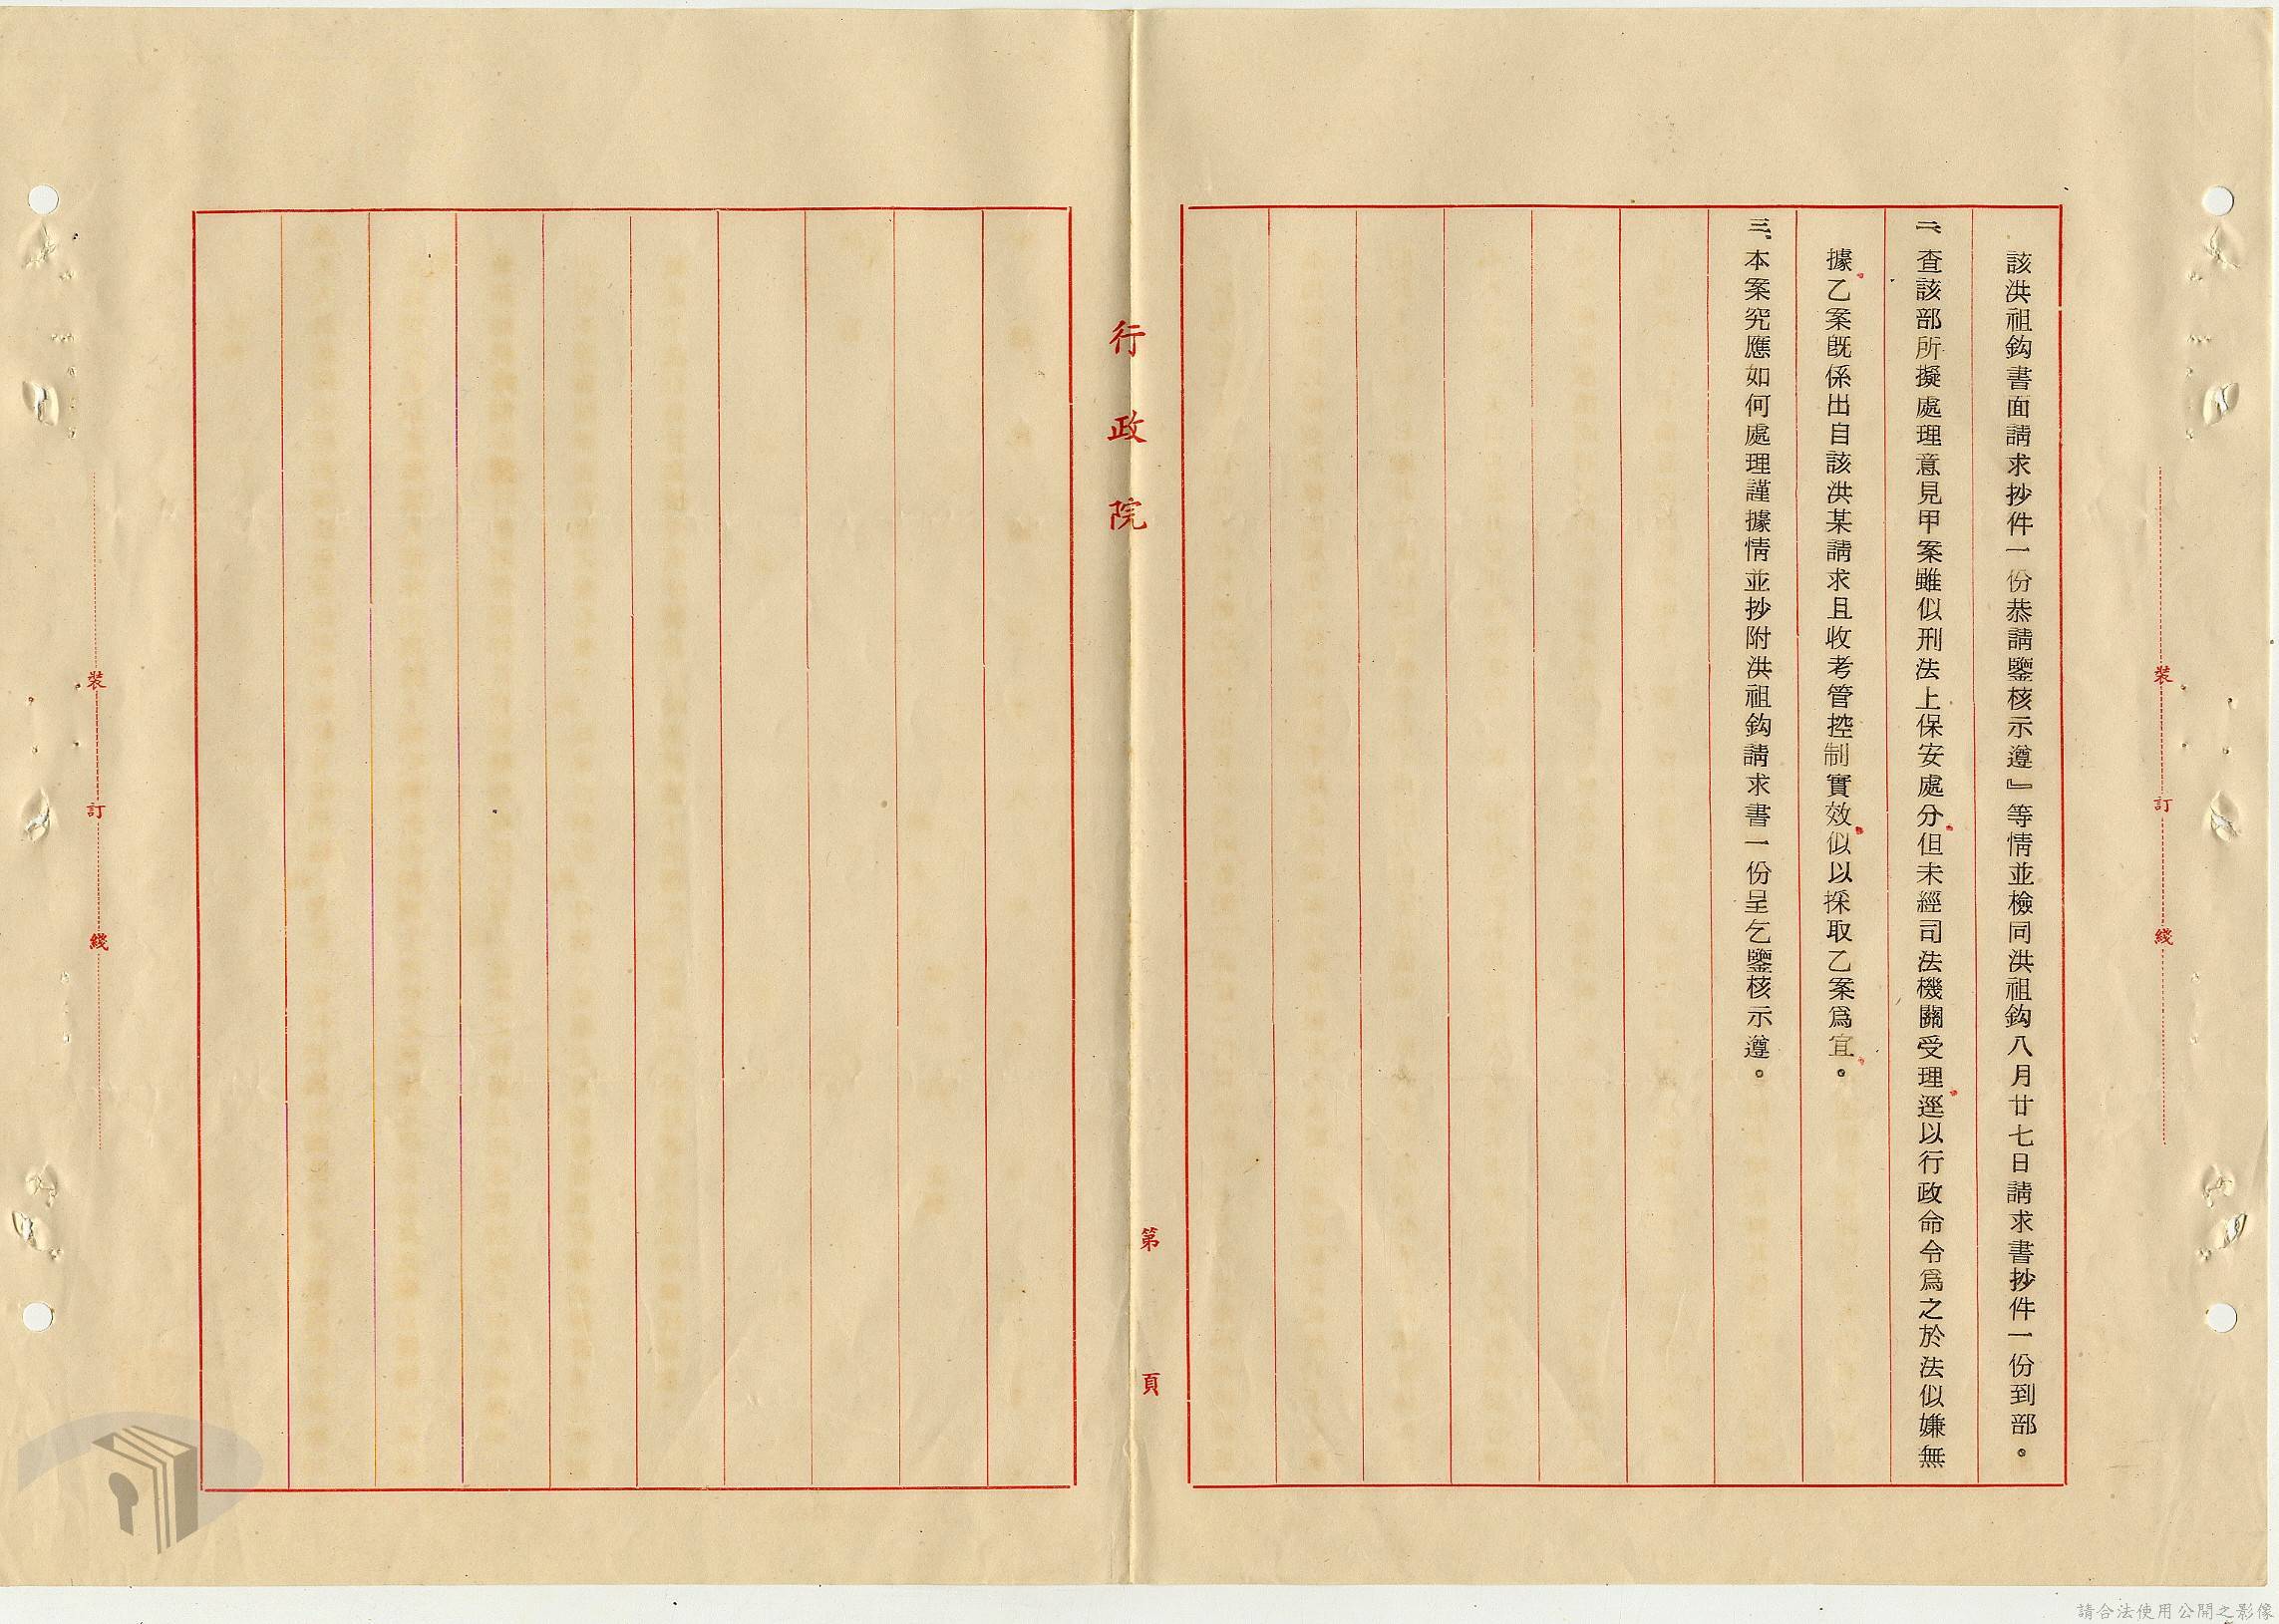 該洪祖鈎書面請求抄件一份恭請鑒核示遵』等情並檢同洪祖鈎八月廿七日請求書抄件一份到部。
二、查該部所擬處理意見甲案雖似刑法上保安處分但未經司法機關受理逕以行政命令爲之於法似嫌無
據乙案既係出自該洪某請求且收考管控制實效似以採取乙案爲宜。
三、本案究應如何處理謹據情並抄附洪祖鈎請求書一份呈乞鑒核示遵。
行政院
第 頁
裝 訂 綫
裝 訂 綫
請合法使用公開之影像